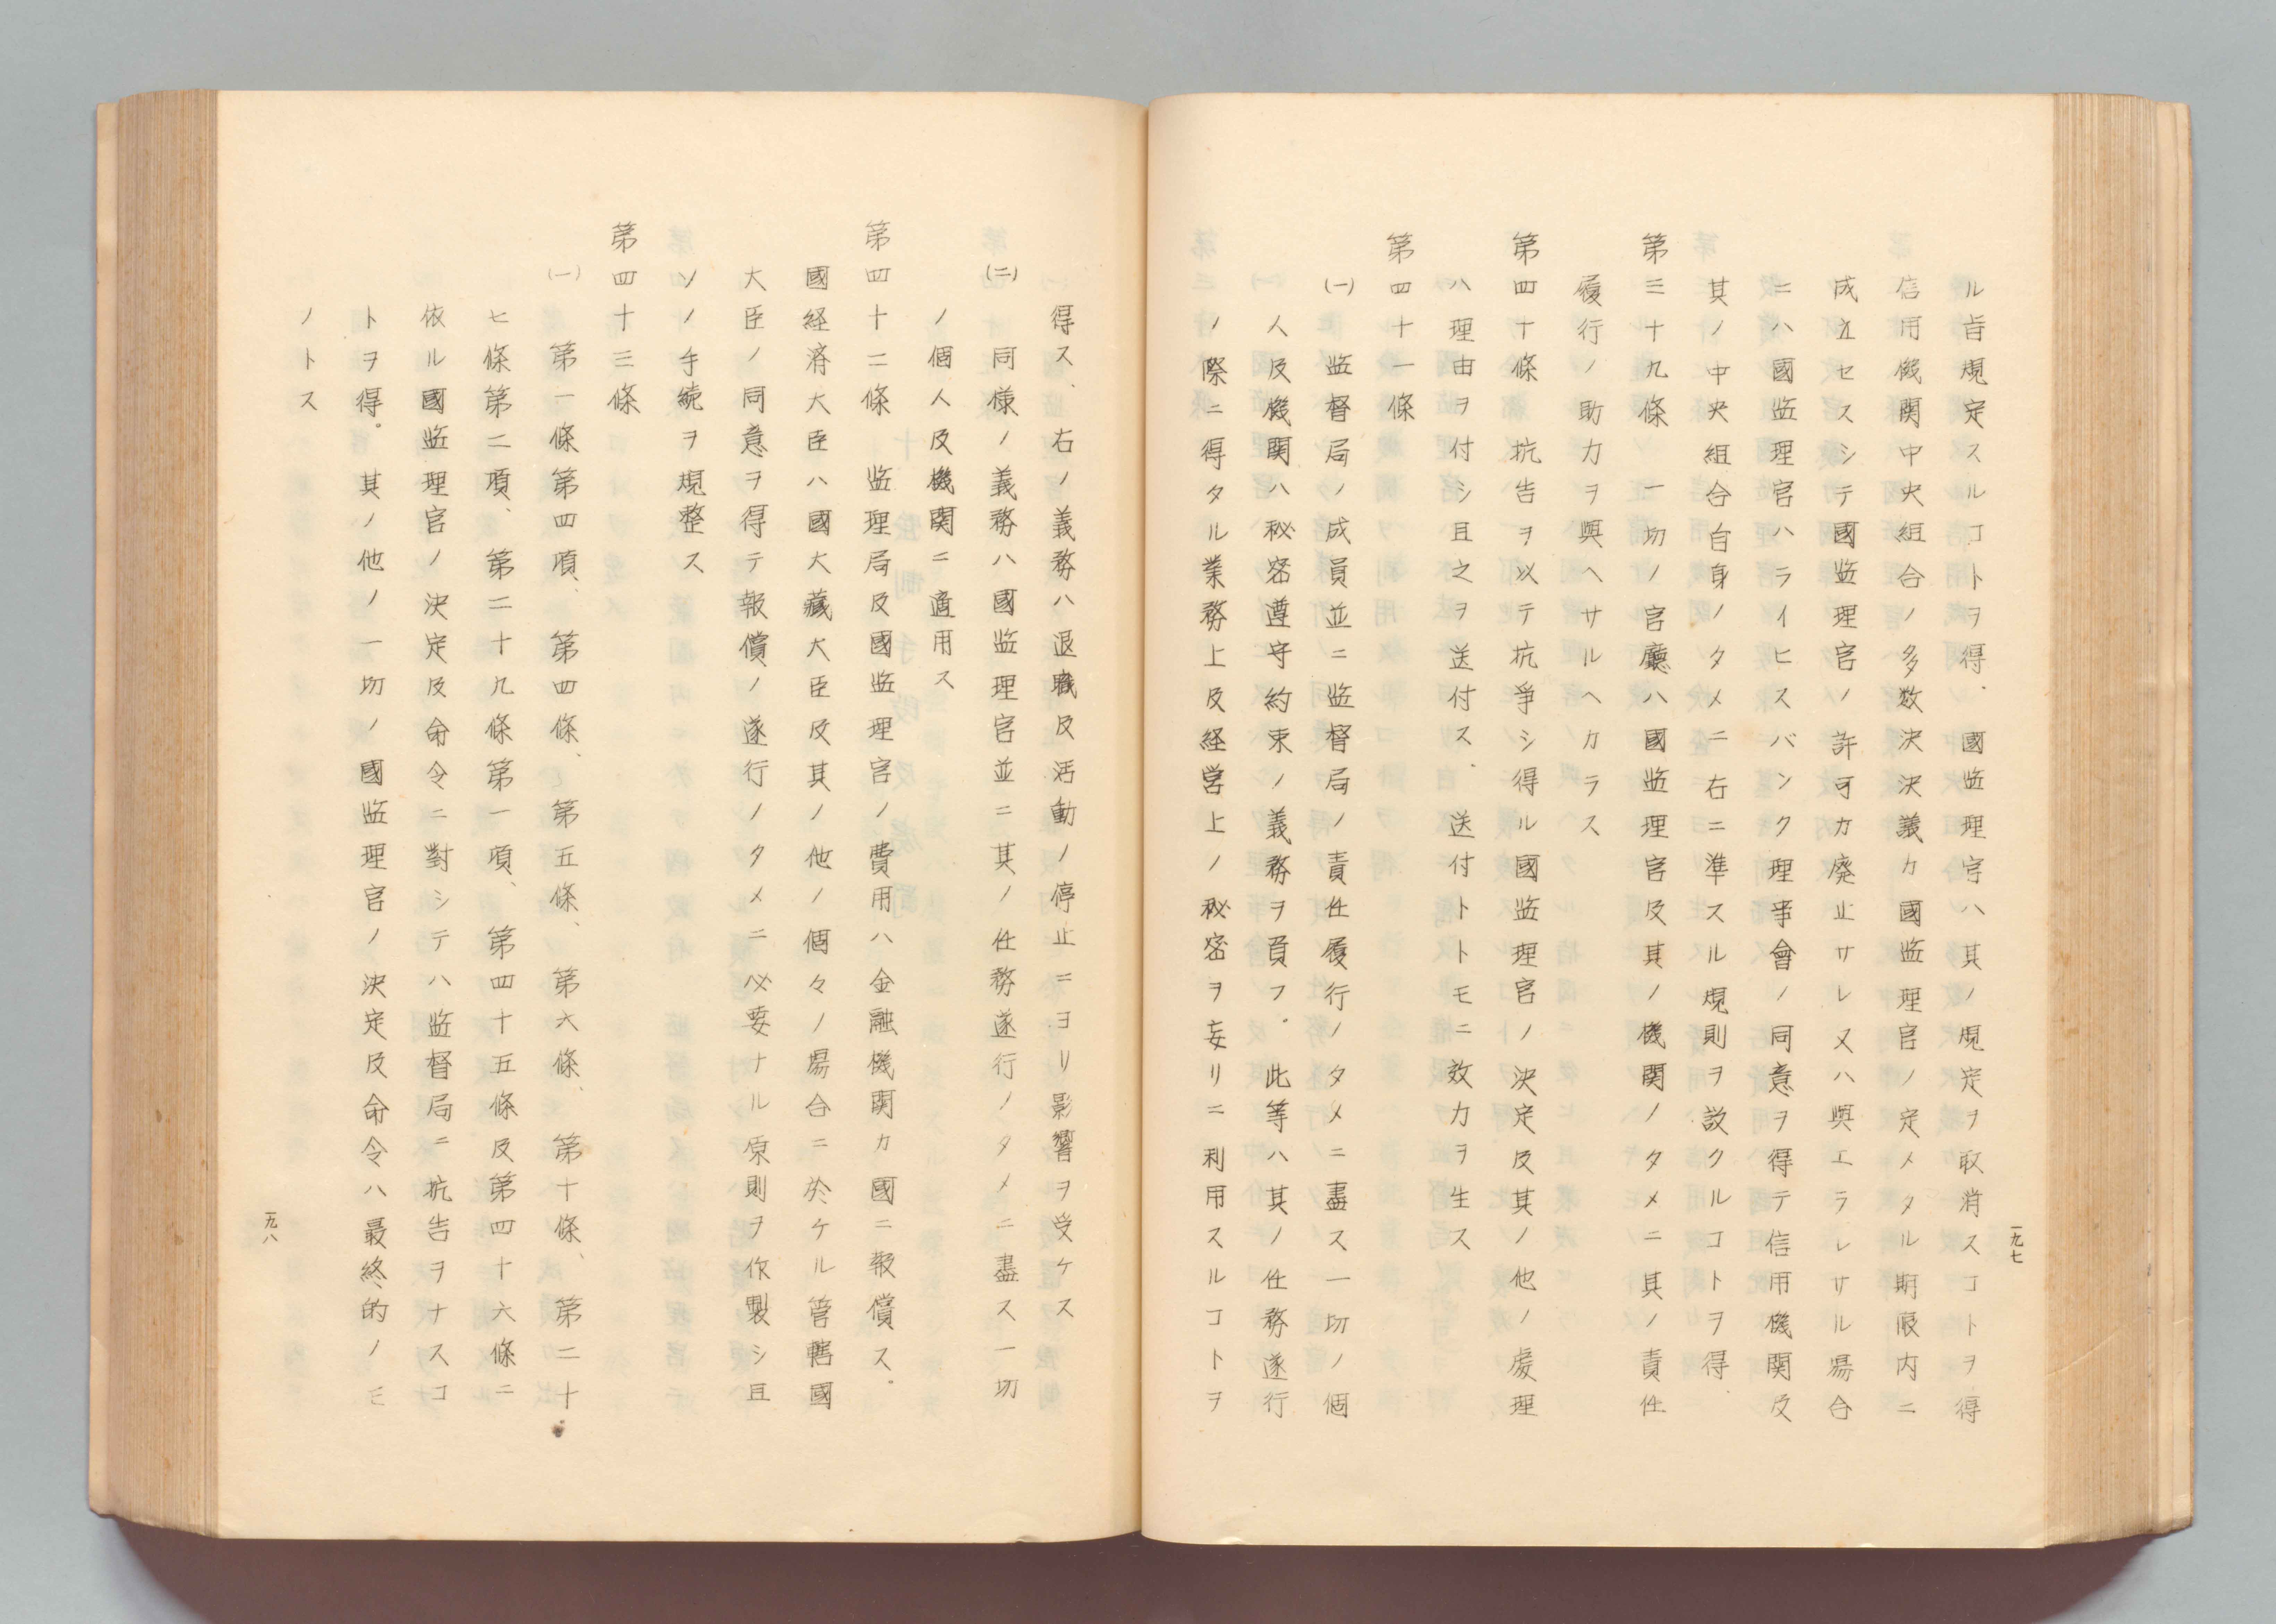 一九七
ル旨規定スルコトヲ得．國监理官ハ其ノ規定ヲ取消スコトヲ得
信用機関中央組合ノ多数決決議カ國监理官ノ定メタル期限内ニ
成立セスシテ國监理官ノ許可カ廃止サレ又ハ與エラレサル場合
ニハ國监理官ハライヒスバンク理事會ノ同意ヲ得テ信用機関及
其ノ中央組合自身ノタメニ右ニ準スル規則ヲ設クルコトヲ得．
第三十九條　一切ノ官廳ハ國监理官及其ノ機関ノタメニ其ノ責任
履行ノ助力ヲ與ヘサルヘカラス
第四十條　抗告ヲ以テ抗爭シ得ル國监理官ノ決定及其ノ他ノ處理
ハ理由ヲ付シ且之ヲ送付ス．送付トトモニ效力ヲ生ス
第四十一條
(一)　监督局ノ成員並ニ监督局ノ責任履行ノタメニ盡ス一切ノ個
人及機関ハ秘密遵守約束ノ義務ヲ負フ．此等ハ其ノ任務遂行
ノ際ニ得タル業務上及経営上ノ秘密ヲ妄リニ利用スルコトヲ
得ス、右ノ義務ハ退職及活動ノ停止ニヨリ影響ヲ受ケス
(二)　同様ノ義務ハ國监理官並ニ其ノ任務遂行ノタメニ盡ス一切
ノ個人及機関ニ適用ス
第四十二條　监理局及國监理官ノ費用ハ金融機関カ國ニ報償ス。
國経済大臣ハ國大藏大臣及其ノ他ノ個々ノ場合ニ於ケル管轄國
大臣ノ同意ヲ得テ報償ノ遂行ノタメニ必要ナル原則ヲ作製シ且
ソノ手続ヲ規整ス
第四十三條
(一)　第一條第四項、第四條、第五條、第六條、第十條、第二十
七條第二項、第二十九條第一項、第四十五條及第四十六條ニ
依ル國监理官ノ決定及命令ニ對シテハ监督局ニ抗告ヲナスコ
トヲ得。其ノ他ノ一切ノ國监理官ノ決定及命令ハ最終的ノモ
ノトス
一九八